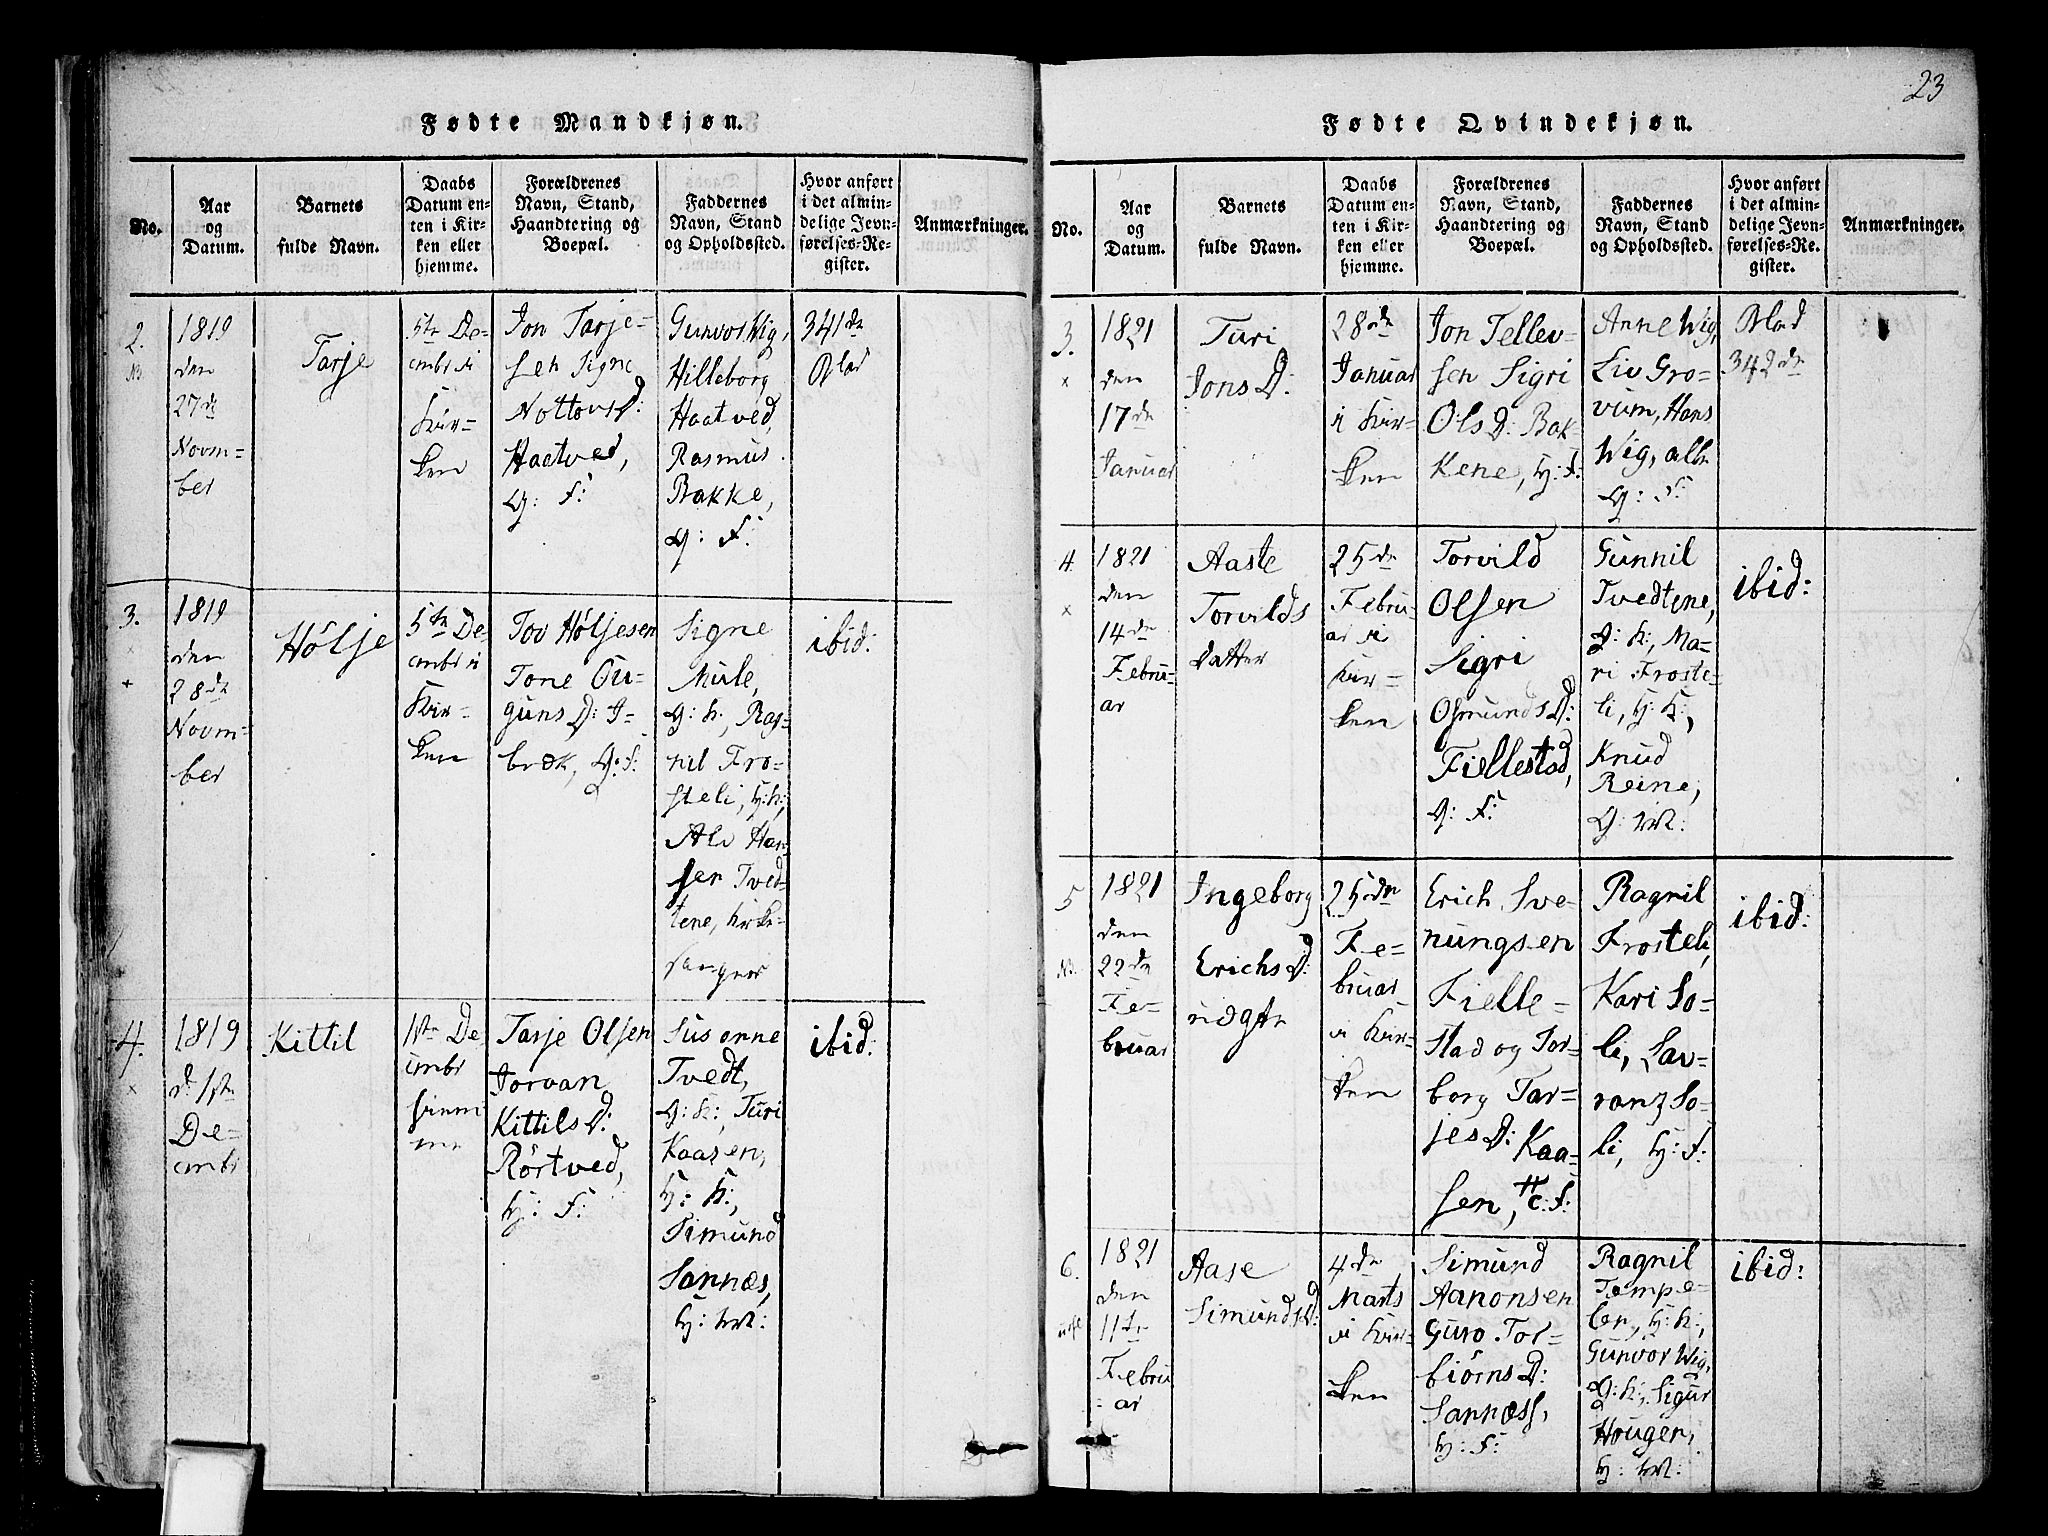 Fødte Mandkjøn.
No.
Aar
og
Datum.
Barnets
fulde Navn.
Daabs
Datum en-
ten i Kir-
ken eller
hjemme.
Forældrenes
Navn, Stand,
Haandtering og
Boepæl.
Faddernes
Navn, Stand
og Opholdssted.
Hvor anført
i det almin-
delige Jevn-
førelses-Re-
gister.
Anmærkninger.
2.
1819
den
27de
Novm-
ber
Tarje
5te De-
cmbr i
Kir-
ken
Jon Tarje-
sen Signe
NottovsD:
Haatved,
G: F:
Gunvor Wig,
Hilleborg
Haatved,
Rasmus
Bakke,
G: F:
341de
Blad
3.
1819
den
28de
Novm-
ber
Höljе
5te De
cmbr i
Kir-
ken
Tov Höljesen
Tone Gu-
gunsD:
bræk, G: F:
Signe
Mule,
G: K:, Rag-
nil Fro-
steli, H: K:,
Alv Han-
sen Tved-
tene, Kirke-
sanger
ibid:
4.
1819
d. 1ste
De-
cmbr
Kittil
1ste De
cmbr
hiem
me
Tarje Olsen
Jorvan
KittilsD:
Rörtved,
H: F:
Susanne
Tvedt,
G: K:, Turi
Kaasen,
H: K:,
Simund
Sannæs,
H: M:
ibid:
23
Fødte Qvindekjøn.
No.
Aar
og
Datum.
Barnets
fulde Navn.
Daabs
Datum en-
ten i Kir-
ken eller
hjemme.
Forældrenes
Navn, Stand,
Haandtering og
Boepæl.
Faddernes
Navn, Stand
og Opholdssted.
Hvor anført
i det almin-
delige Jevn-
førelses-Re-
gister.
Anmærkninger.
3.
1821
den
17de
Januar
Turi
JonsD:
28de
Januar
i Kir-
ken
Jon Tellev-
sen Sigri
OlsD: Bak-
kene, H: F:
Anne Wig,
Liv Gro-
vum, Hans
Wig, alle
G: F:
Blad
342de
4.
1821
den
14de
Febru-
ar
Aaste
Torvilds
datter
25de
Febru-
ar i
Kir-
ken
Torvild
Olsen
Sigri
OsmundsD:
Fiellestad,
G: F:
Gunnil
Tvedtene,
G: K:, Ma-
ri Froste-
li, H: K:,
Knud
Reine,
G: M:
ibid:
5
1821
den
22de
Fe-
bruar
Ingeborg
ErichsD:
uægte
25de
Fe-
bruar
i Kir-
ken
Erich Sve-
nungsen
Fielle-
stad og Tor-
borg Tar-
jesD: Kaa-
sen, H: F:
Ragnil
Frosteli,
Kari So-
li, Lav-
ranz So-
li, H: F:
ibid:
6.
1821
den
11te
Febru
- ar
Aase
SimundsD:
4de
Marts
i Kir-
ken
Simund
Aanonsen
Guro Tor-
biörnsD:
Sannæss,
H: F:
Ragnil
Tempe-
len, H: K:,
Gunvor Wig,
G: K:, Sigur
Hougen,
H: M:
ibid: